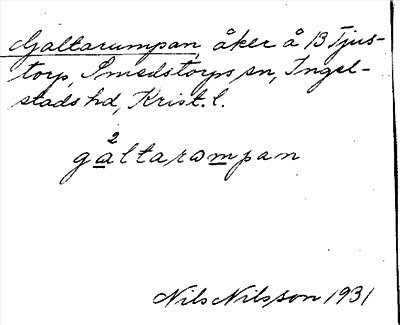 Galtarumpan, åker å 13 Tjus-
torp, Smedstorps sn, Ingel-
stads hd, Krist. l.
2
galtarompan
Nils Nilsson 1931